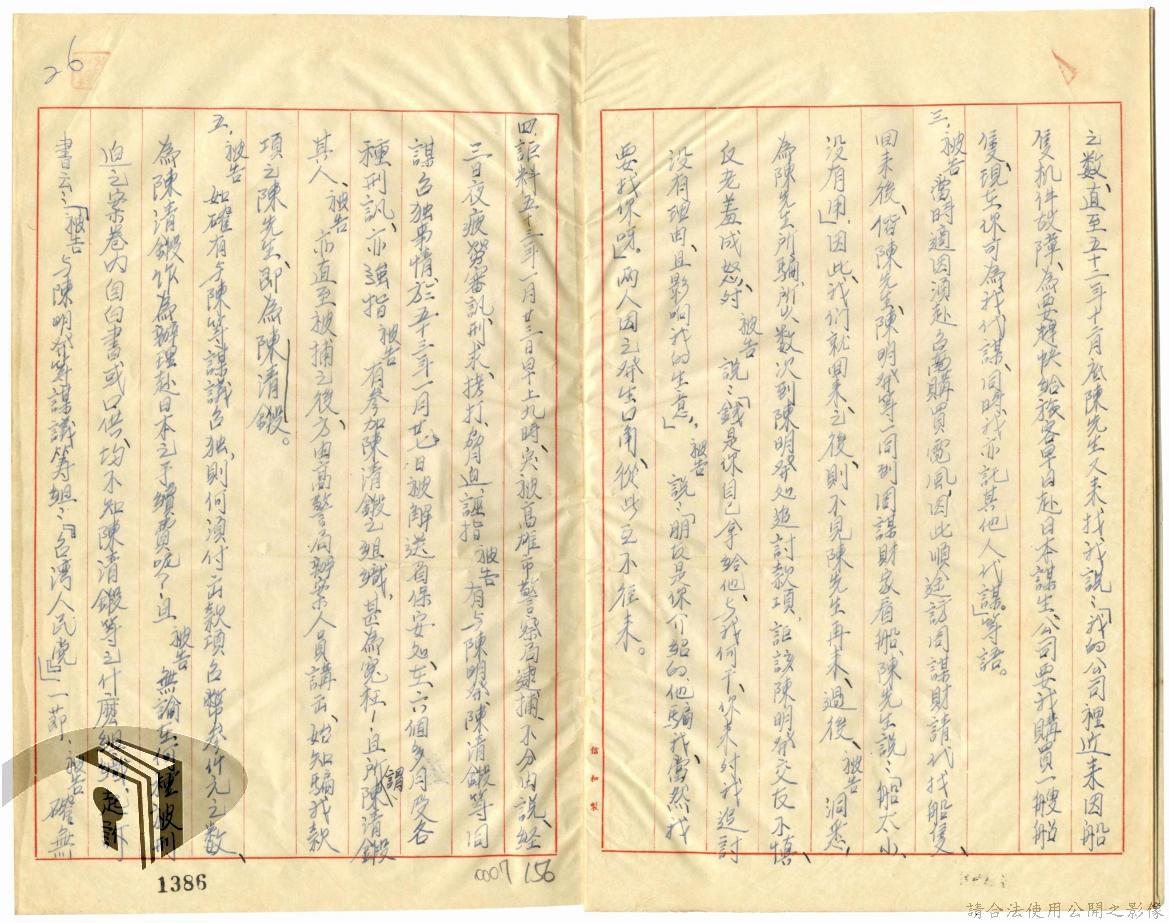 之數、直至五十二年十二月底陳先生又來找我說:「我的公司裡近來因船
隻机件故障、為要趕快給旅客早日赴日本謀生、公司要我購買一艘船
隻、現在你可為我代謀、同時我亦託其他人代謀。」等語。
三、被告當時適因須赴台南購買電風、因此順途訪周謀財請代找船隻、
回來後、偕陳先生、陳明發等一同到周謀財家看船、陳先生說:「船太小、
沒有用」因此、我们就回來、之後、則不見陳先生再來、過後、被告洞悉、
為陳先生所騙、所以數次到陳明發処追討款項、詎該陳明發交友不慎、
反老羞成怒、对被告說:「錢是你自己拿給他、与我何干、你來对我追討
沒有理由、且影响我的生意」、被告說:「朋友是你介紹的、他騙我、當然我
要找你呀」、兩人因之發生口角、從此互不往來。
四、詎料五十三年一月廿三日早上九時、突被高雄市警察局逮捕、不分由說、経
三日夜疲勞審訊、刑求、拷打、脅迫、誣指被告有与陳明發、陳清鍛等同
謀台独事情、於五十三年一月廿七日被解送省保安処、在六個多月及各
種刑訊、亦強指被告有參加陳清鍛之組織、甚為寃枉、且所謂陳清鍛
其人、被告亦直至被捕之後、方由高警局辦案人員講出、始知騙我款
項之陳先生、即為陳清鍛。
五、被告如確有与陳等謀議台独、則何須付出款項台幣 仟元之數、
為陳清鍛作為辦理赴日本之手續費呢?且被告無論在何種被刑
迫之案卷內自白書或口供、均不知陳清鍛等之什麼組織、
書云:「被告与陳明發等謀議籌組:「台湾人民党」」一節、被告確無
26
信和製
起訴
1386
0007
156
請合法使用公開之影像